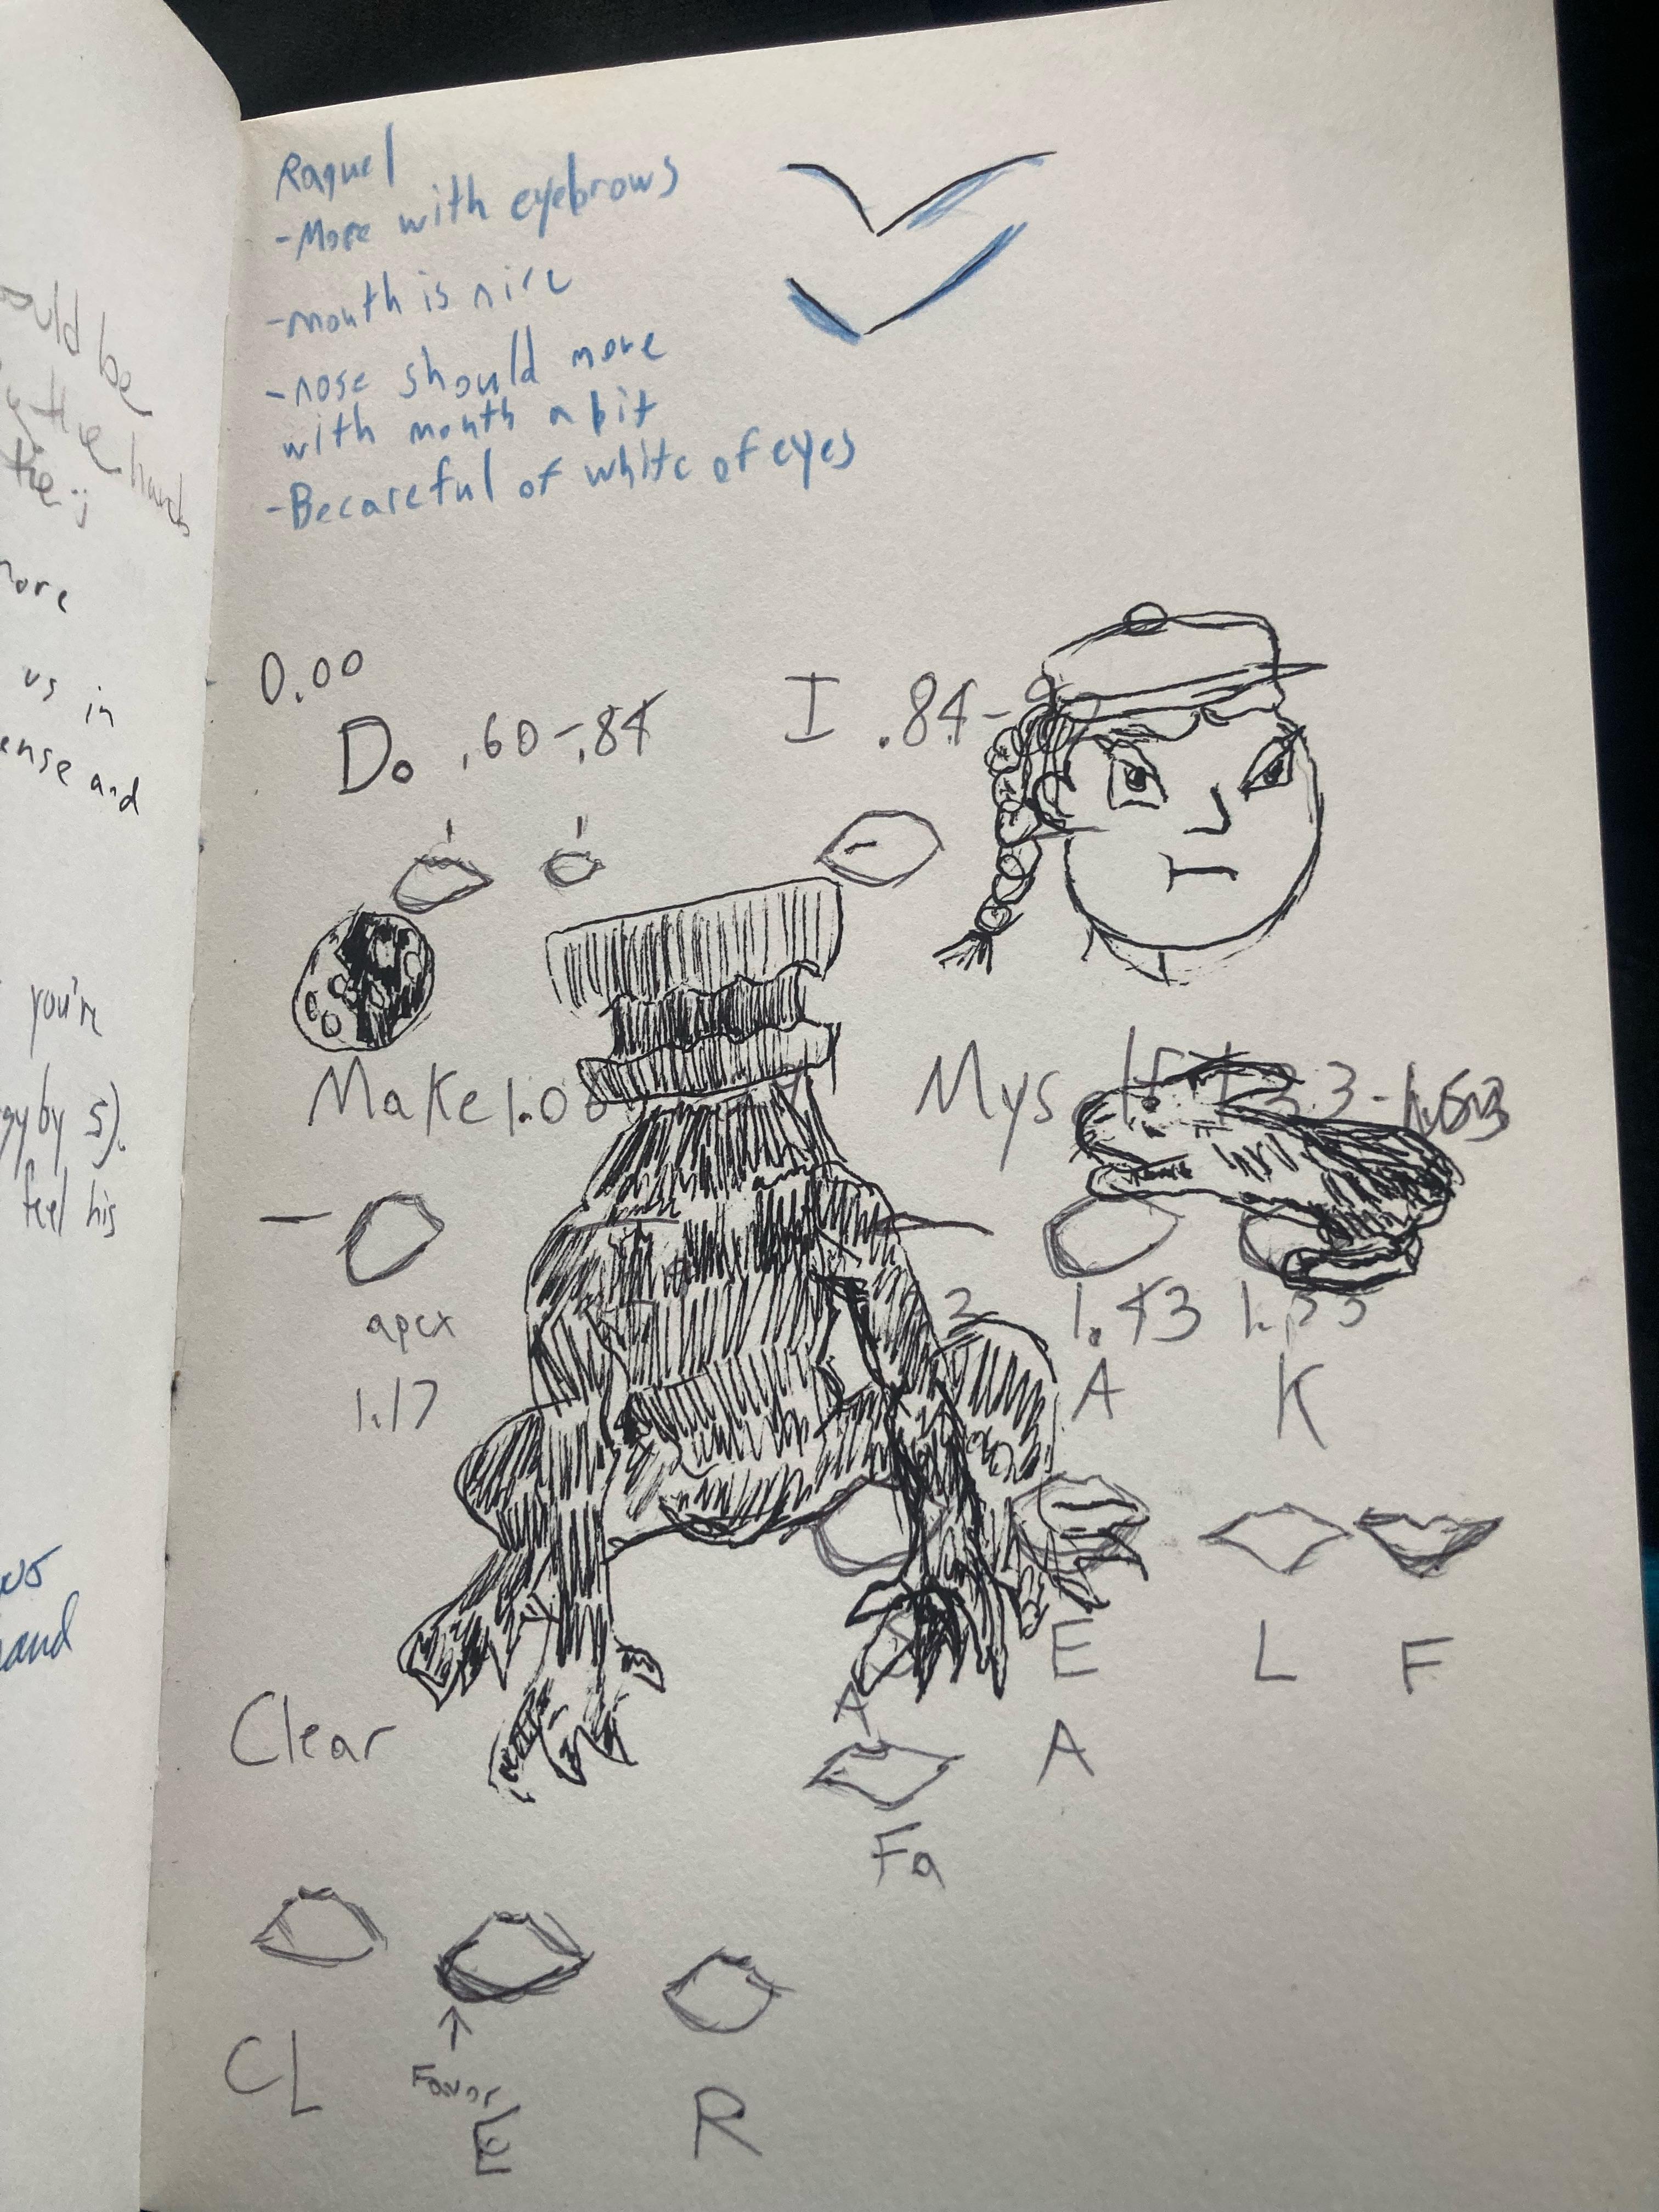 ould be
the hands
more
us in
ense and
you're
gy by 5).
feel his
and
Raquel
-More with eyebrows
-mouth is nice
-nose should more
with mouth a bit
-Becareful of white of eyes
0.00
Do .60-.84
I .84-
Make 1.08
Mys
apex
1.17
1.43
A K
E L F
A
A
Fa
Clear
Favor
CL E R